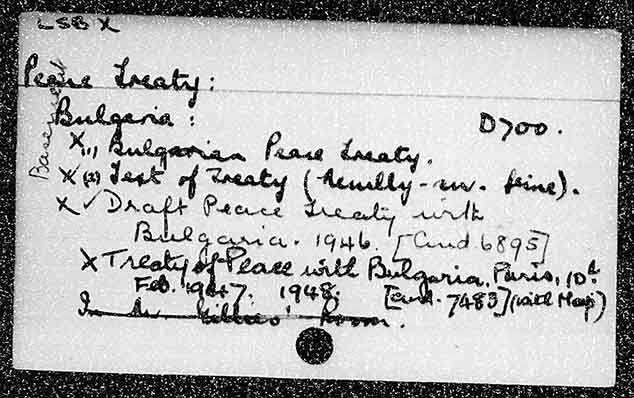 LSB X
Peace Treaty:
Basement
Bulgaria:
D700.
X (1) Bulgarian Peace Treaty.
X (2) Text of Treaty (Neuilly-sur-Seine).
X ✓ Draft Peace Treaty with
Bulgaria. 1946. [Cmd 6895]
X Treaty of Peace with Bulgaria, Paris, 10th
Feb. 1947. 1948. [Cmd. 7483] (with Map)
In Mr Gillies' Room.